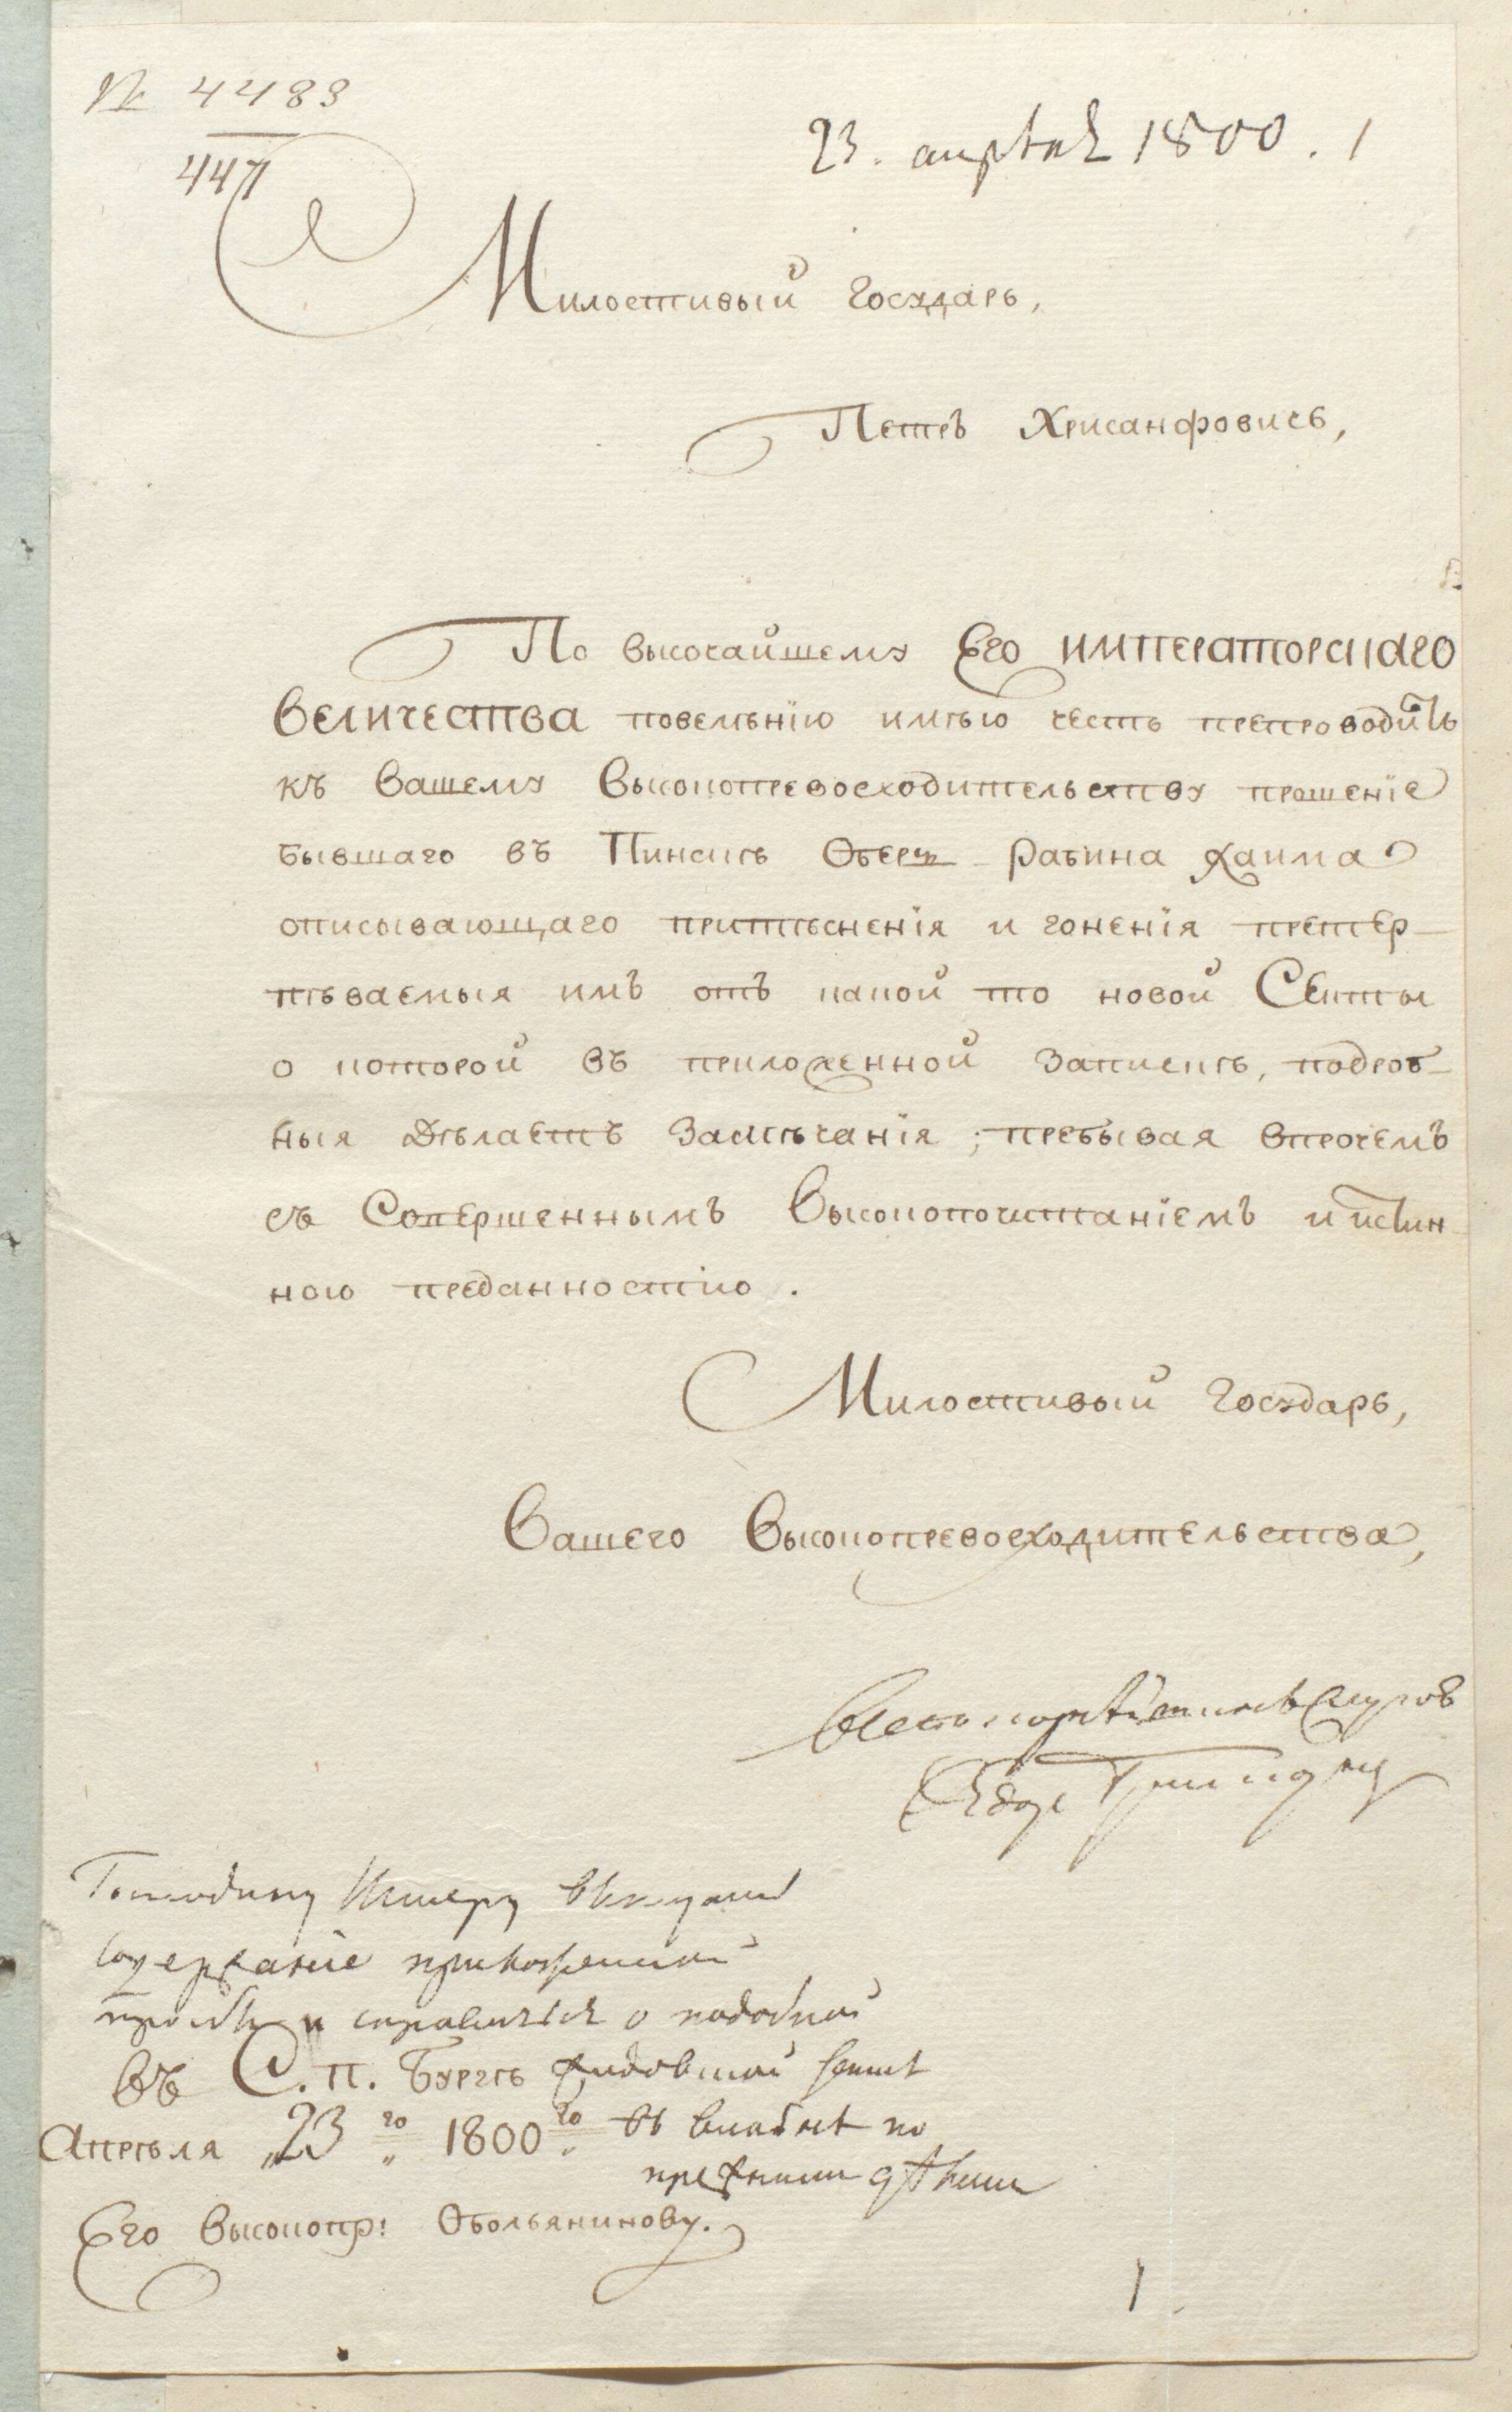 № 4483
447
23. апрѣля 1800. 1
Милостивый Государь,
Петръ Хрисанфовичь,
По высочайшему Его ИМПЕРАТОРСКАГО
ВЕЛИЧЕСТВА повелѣнїю имѣю честь препроводить
къ Вашему Высокопревосходительству прошенїе
бывшаго въ Пинскѣ Оберъ-Рабина Хаима
описывающаго притѣсненїя и гоненїя претер-
пѣваемыя имъ отъ какой то новой Секты
о которой въ приложенной Запискѣ, подроб-
ныя Дѣлаетъ Замѣчанїя; пребывая впрочемъ
съ Совершеннымъ Высокопочитанїемъ и истин-
ною преданностїю.
Милостивый Государь,
Вашего Высокопревосходительства,
Господину
содержанїе приложенной
прозьбы и справится о подобной
въ С. П. Бургѣ жидовской сектѣ
Апрѣля „23го„ 1800го„ въ по
прежнимъ дѣламъ
Его Высокопр: Обольянинову.
1